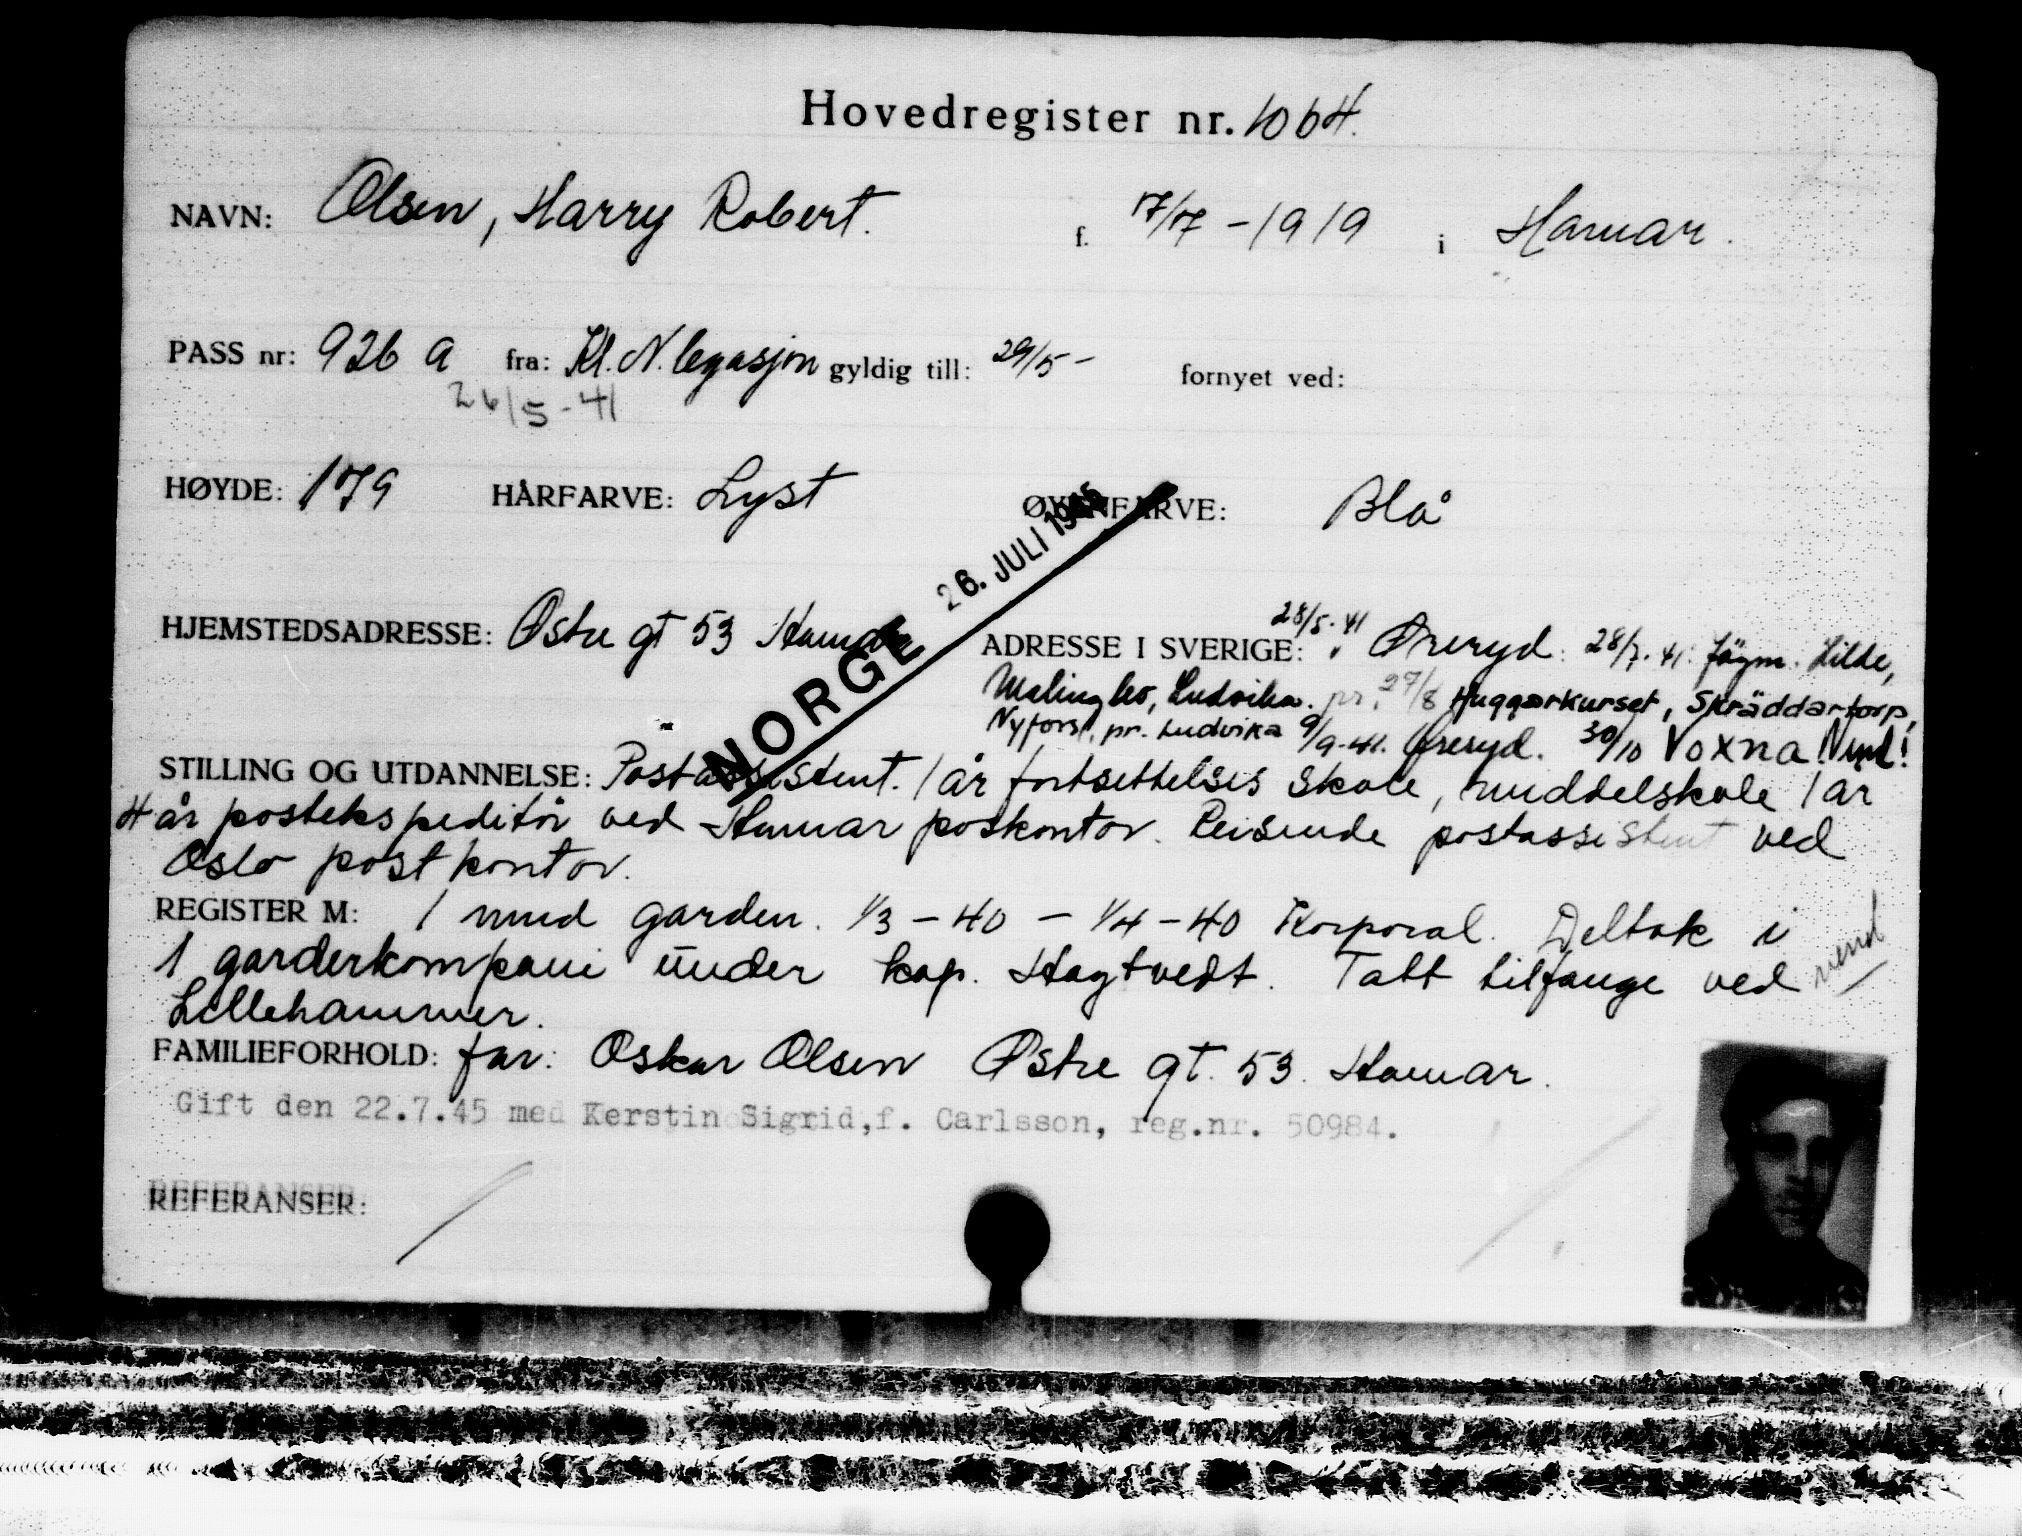 Hovedregister nr. 1064.
NAVN: Olsen, Harry Robert. f. 17/7 - 1919 i Hamar.
PASS nr: 926 A fra: Kl. N. legasjon gyldig till: 29/5 - fornyet ved:
26/5 - 41
HØYDE: 179 HÅRFARVE: Lyst ØYENFARVE: Blå
26. JULI 1945
NORGE
HJEMSTEDSADRESSE: Østre gt 53 Hamar ADRESSE I SVERIGE: 28/5-41 Øreryd. 28/7. 41. Jägm. Hilde,
Malingsbo, Ludvika. pr. 27/8 Huggarkurset, Skräddartorp,
Nyfors, pr. Ludvika 9/9-41. Øreryd. 30/10 Voxna Vend!
STILLING OG UTDANNELSE: Postassistent. 1 år fortsettelses skole, middelskole 1 år
4 år postekspeditør ved Hamar poskontor. Reisende postassistent ved
Oslo postkontor.
REGISTER M: 1 mnd garden. 1/3 - 40 - 1/4 - 40 Korporal. Deltok i
1 garderkompani under kap. Hagtvedt. Tatt tilfange ved vend
Lillehammer.
FAMILIEFORHOLD: far: Oskar Olsen Østre gt. 53. Hamar.
Gift den 22.7.45 med Kerstin Sigrid, f. Carlsson, reg.nr. 50984.
REFERANSER: